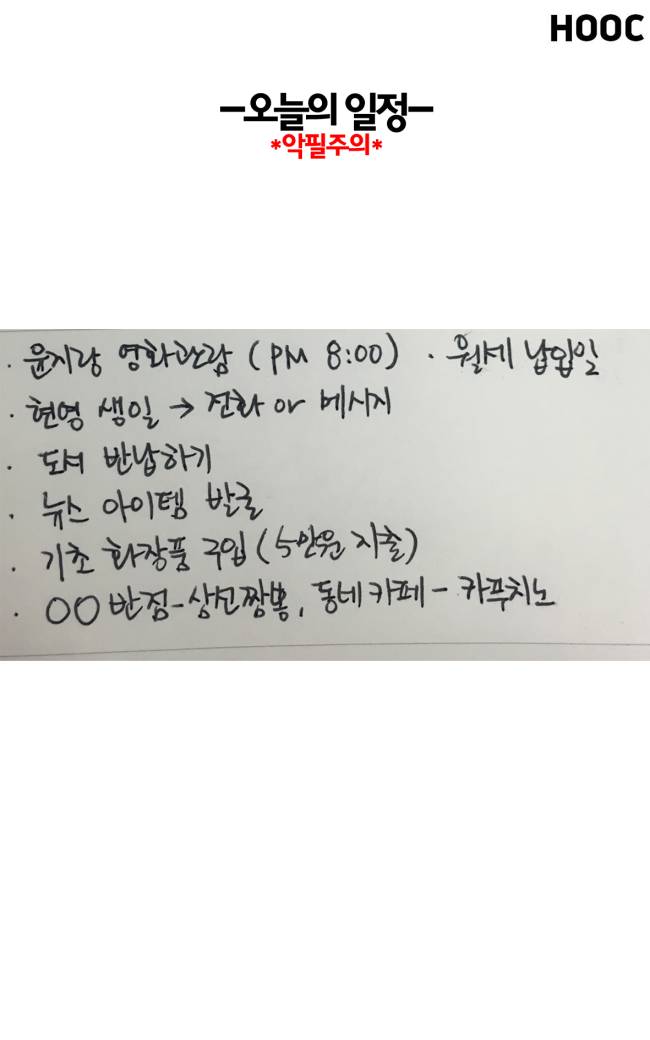 HOOC
-오늘의 일정-
*악필주의*
· 윤지랑 영화관람 (PM 8:00) · 월세 납입일
· 현영 생일 → 전화 or 메시지
· 도서 반납하기
· 뉴스 아이템 발굴
· 기초 화장품 구입 (5만원 지출)
· OO반점-삼선짬뽕, 동네카페 - 카푸치노